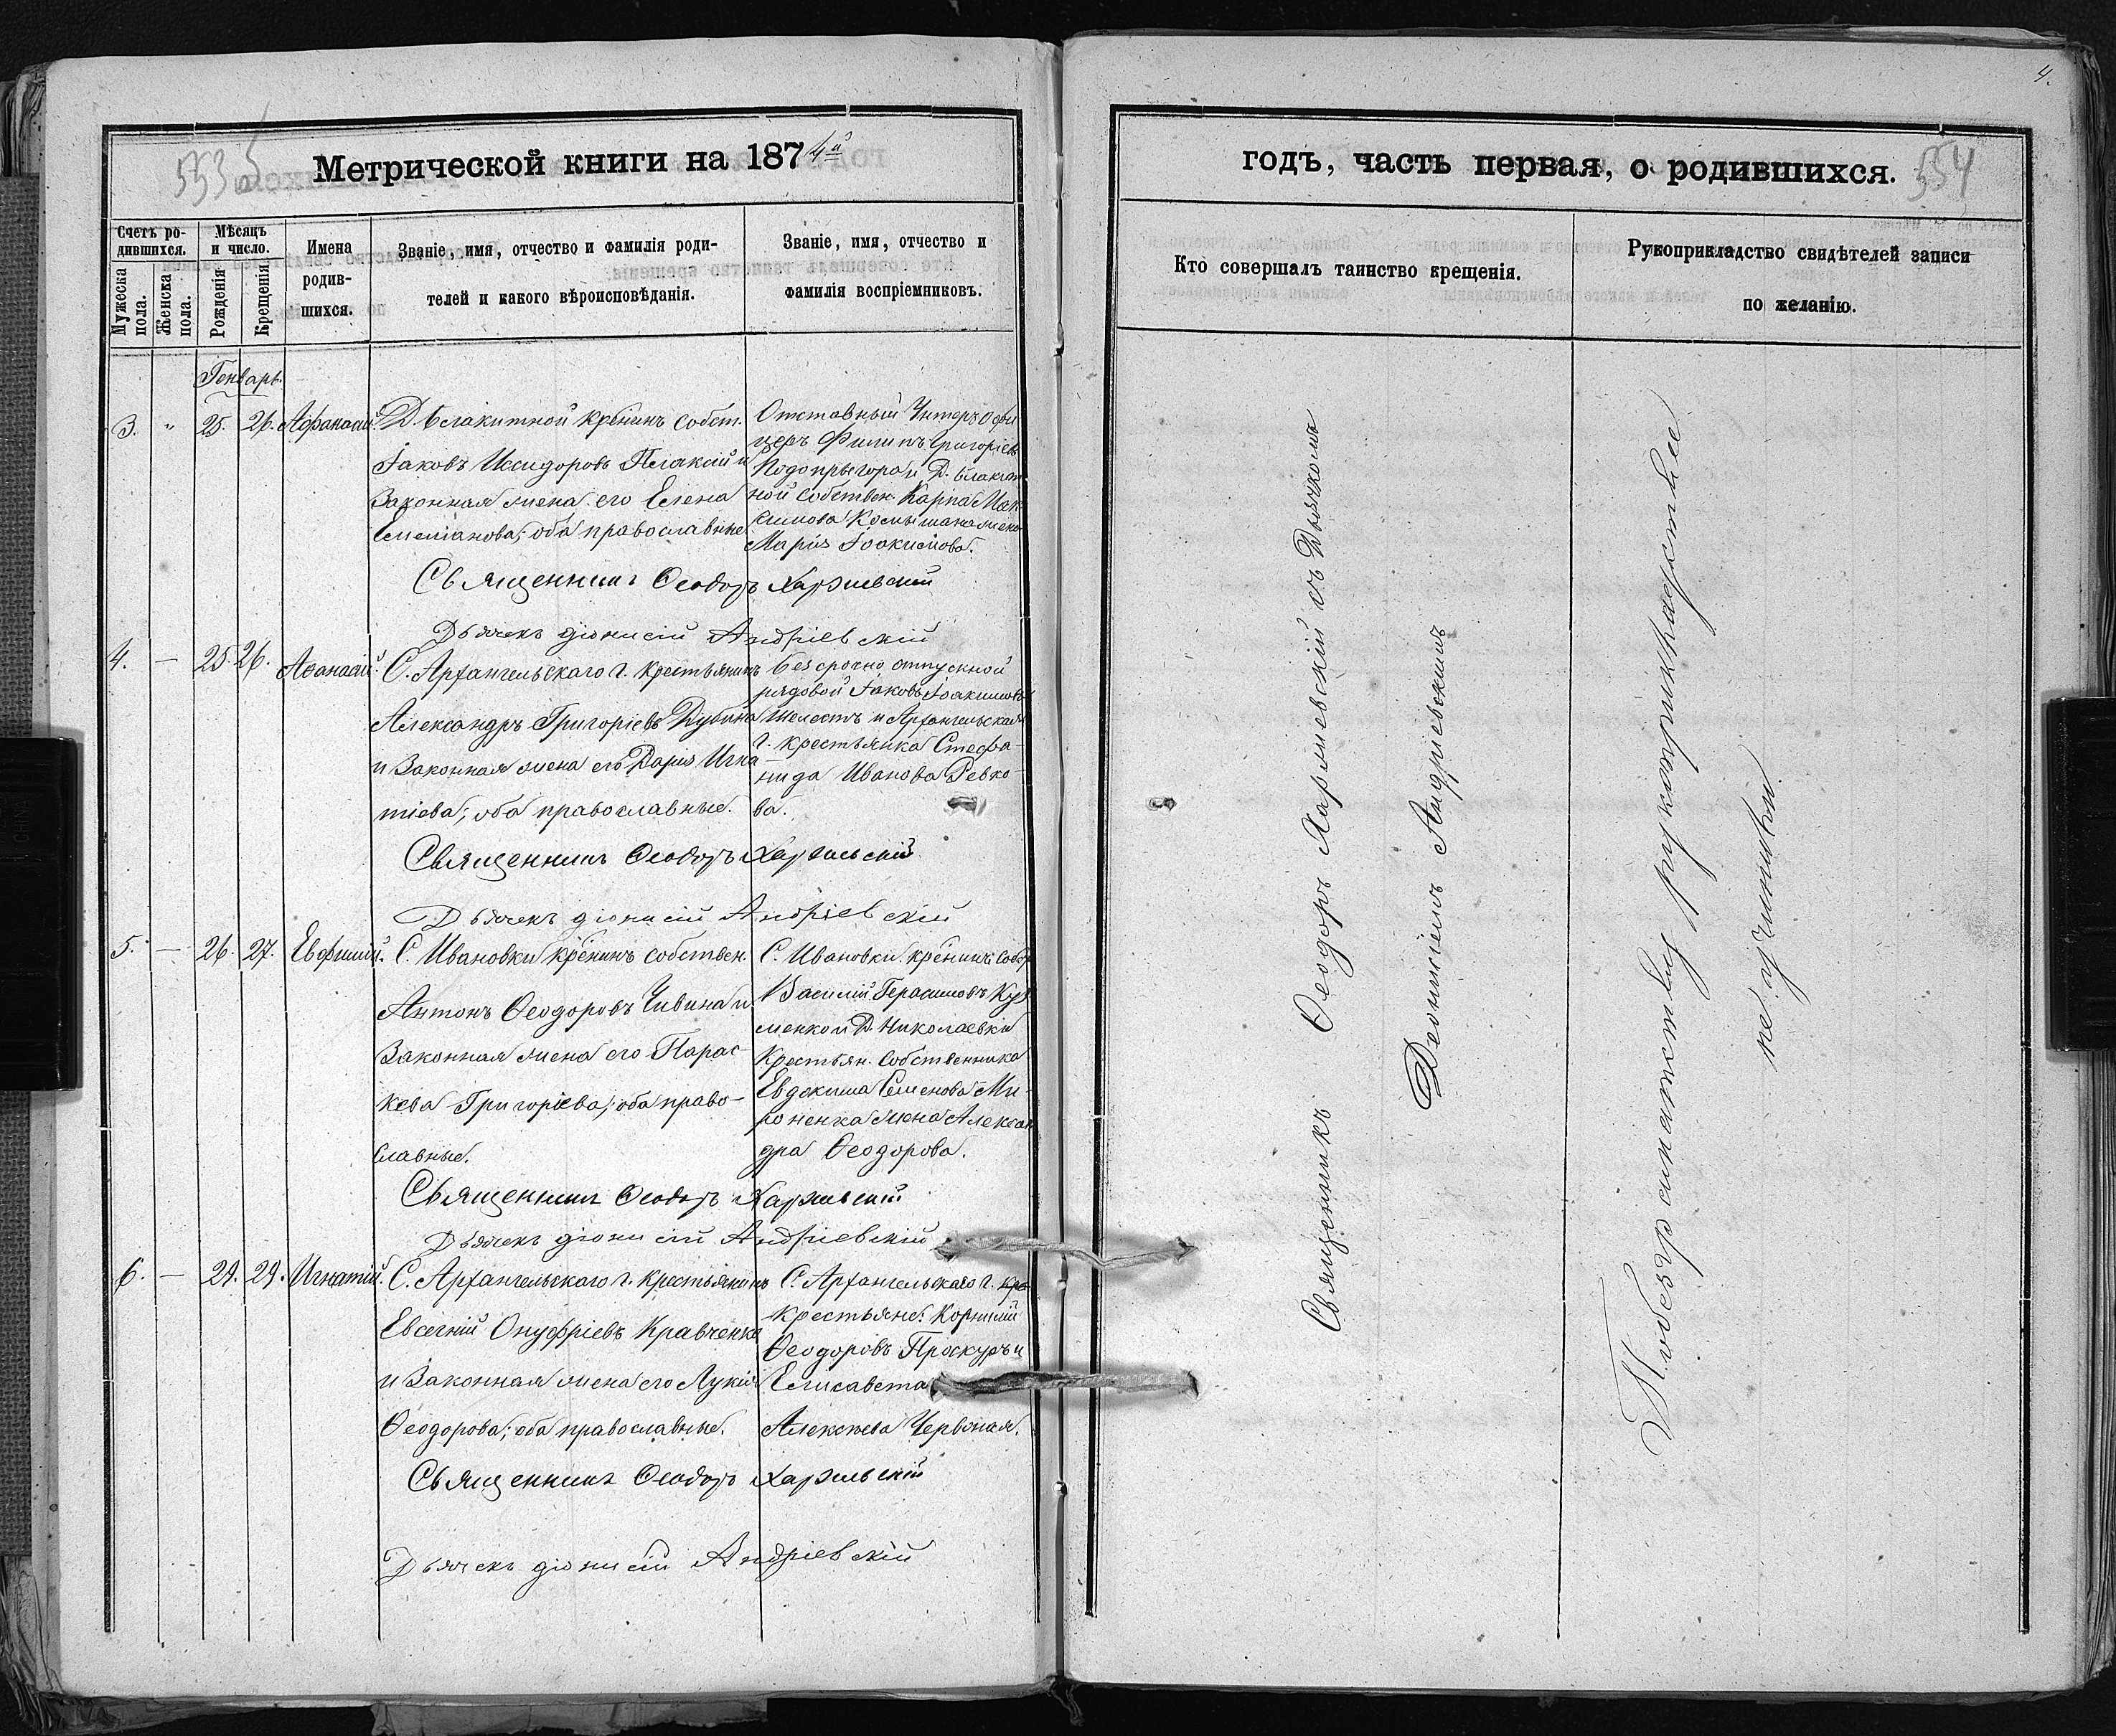 4.
553
Метрической книги на 1874й
годъ, часть первая, о родившихся.
554
Счетъ ро-
дившихся.
Мужеска
пола.
Женска
пола.
Мѣсяцъ
и число.
Рожденія.
Крещенія.
Имена
родив-
шихся.
Званіе, имя, отчество и фамилія роди-
телей и какого вѣроисповѣданія.
Званіе, имя, отчество и
фамилія воспріемниковъ.
Кто совершалъ таинство крещенія.
Рукоприкладство свидѣтелей записи
по желанію.
Генварь.
3. " 25. 26. Афанасій.
Д. Благитной крѣнинъ собст.
Іаковъ Исидоровъ Плаксій и
Законная жена его Елена
Емеліанова; оба православные
Отставный Унтеръ Офи
церъ Филипъ Григоріевъ
Подопрыгора и Д. Благит
ной собствен. Карпа Мак
симова жена
Марія Іоакимова.
Священникъ Ѳеодоръ Харжевскій
Дьячекъ Діонисій Андріевскій
4. — 25 26. Аѳанасій.
С. Архангельскаго г. крестьянинъ
Александръ Григоріевъ Дубина
и Законная жена его Дарія Игна
тіева; оба православные.
безсрочно отпускной
рядовой Іаковъ Іоакимовъ
Шелестъ и Архангельская
г. крестьянка Стефа-
нида Иванова Ревко-
ва.
Священникъ Ѳеодоръ Харжевскій
Дьячекъ Діонисій Андріевскій
5. — 26. 27. Евфимій.
С. Ивановки крѣнинъ собствен.
Антонъ Ѳеодоровъ Чивина и
Законная жена его Парас-
кева Григоріева; оба право-
славные.
С. Ивановки крѣнинъ собст
Василій Герасимовъ Куз
менко и Д. Николаевки
Крестьян. собственника
Евдокима Семенова Ми-
роненка жена Алексан
дра Ѳеодорова.
Священникъ Ѳеодоръ Харжевскій
Дьячекъ Діонисій Андріевскій
6. — 29. 29. Игнатій.
С. Архангельскаго г. крестьянинъ
Евсегній Онуфріевъ Кравченко
и Законная жена его Лукія
Ѳеодорова; оба православные.
С. Архангельскаго г. кре
крестьяне: Корнилій
Ѳеодоровъ Проскуръ и
Елисавета
Алексѣева Червоная.
Священникъ Ѳеодоръ Харжевскій
Дьячекъ Діонисій Андріевскій
Священникъ Ѳеодоръ Харжевскій съ Дьячкомъ
Деонисіемъ Андріевскимъ
По безграмотству рукоприкладствіе
не учинили